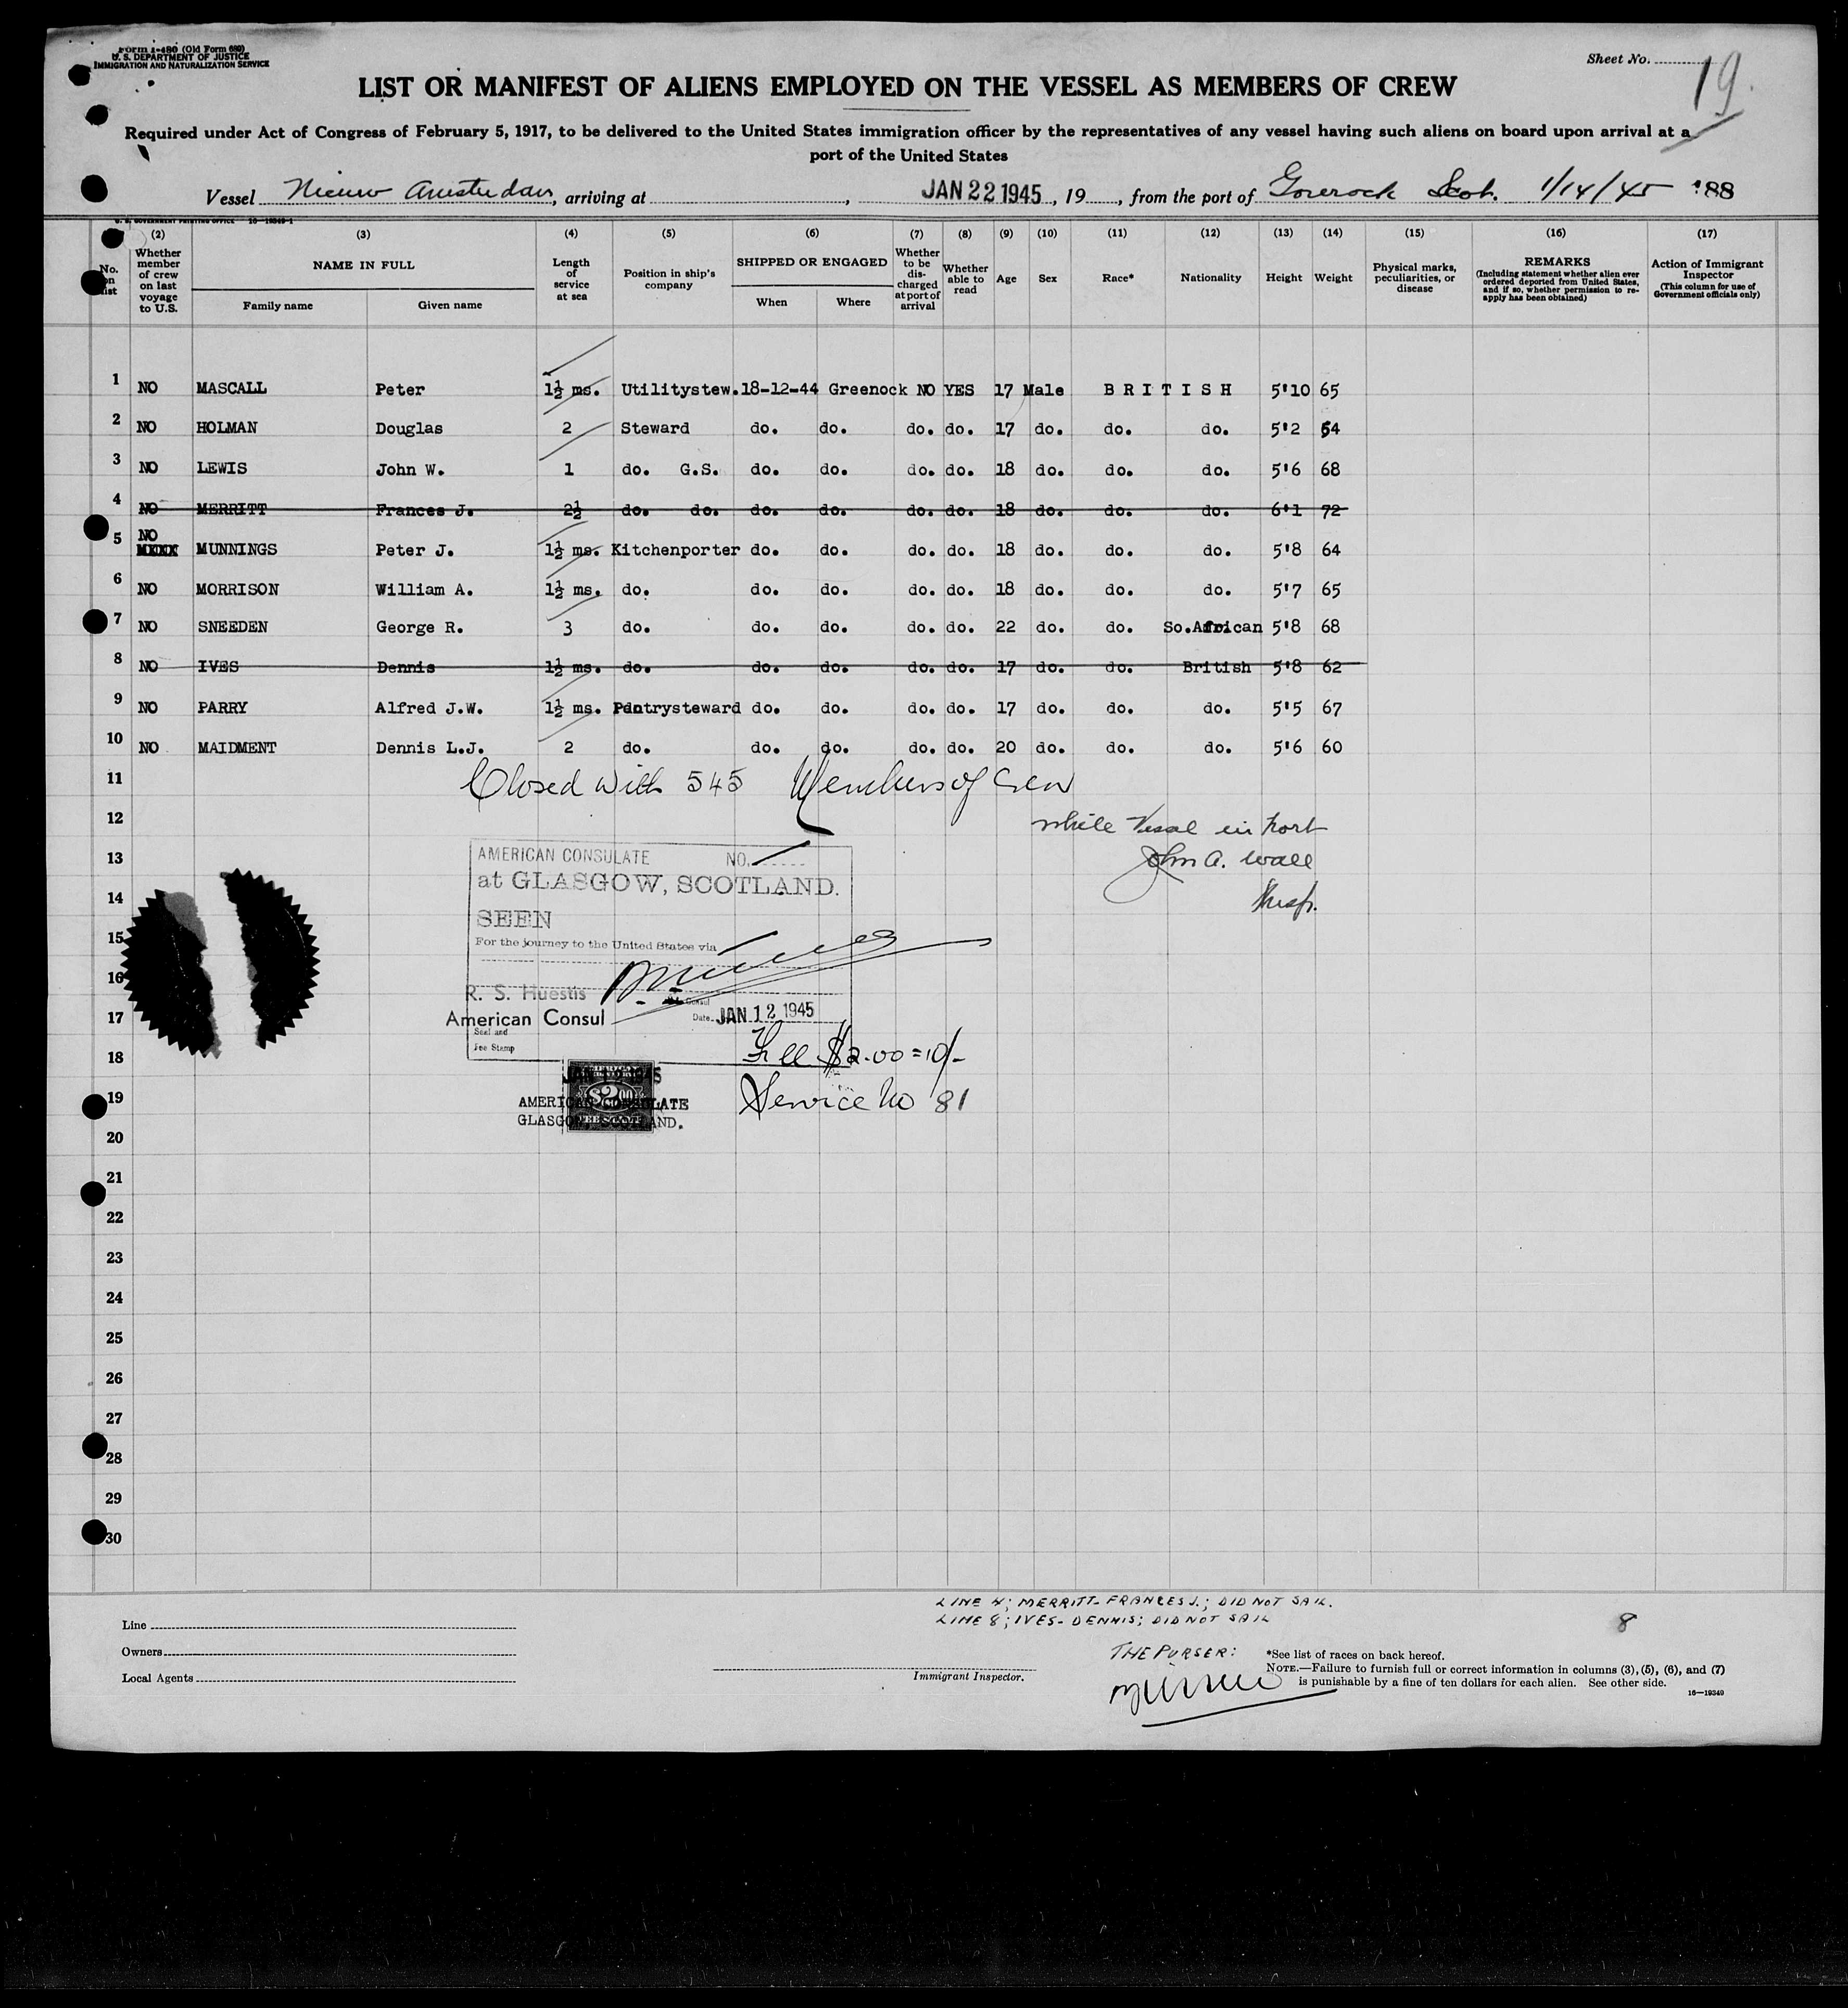 Form I-480 (Old Form 680)
U. S. DEPARTMENT OF JUSTICE
IMMIGRATION AND NATURALIZATION SERVICE
Sheet No. 19.
LIST OR MANIFEST OF ALIENS EMPLOYED ON THE VESSEL AS MEMBERS OF CREW
Required under Act of Congress of February 5, 1917, to be delivered to the United States immigration officer by the representatives of any vessel having such aliens on board upon arrival at a
port of the United States
Vessel Nieuw Amsterdam, arriving at , JAN 22 1945, 19 , from the port of Gourock Scot. 1/14/45 88
U. S. GOVERNMENT PRINTING OFFICE 16—19349-1
(2) (3) (4) (5) (6) (7) (8) (9) (10) (11) (12) (13) (14) (15) (16) (17)
No. on list
Whether member of crew on last voyage to U.S.
NAME IN FULL
Family name Given name
Length of service at sea
Position in ship's company
SHIPPED OR ENGAGED
When Where
Whether to be discharged at port of arrival
Whether able to read
Age
Sex
Race*
Nationality
Height
Weight
Physical marks, peculiarities, or disease
REMARKS
(Including statement whether alien ever ordered deported from United States, and if so, whether permission to re-apply has been obtained)
Action of Immigrant Inspector
(This column for use of Government officials only)
1 NO MASCALL Peter 1½ ms. Utilitystew. 18-12-44 Greenock NO YES 17 Male BRITISH 5'10 65
2 NO HOLMAN Douglas 2 Steward do. do. do. do. 17 do. do. do. 5'2 54
3 NO LEWIS John W. 1 do. G.S. do. do. do. do. 18 do. do. do. 5'6 68
4 NO MERRITT Frances J. 2½ do. do. do. do. do. do. 18 do. do. do. 6'1 72
5 NO MUNNINGS Peter J. 1½ ms. Kitchenporter do. do. do. do. 18 do. do. do. 5'8 64
6 NO MORRISON William A. 1½ ms. do. do. do. do. do. 18 do. do. do. 5'7 65
7 NO SNEEDEN George R. 3 do. do. do. do. do. 22 do. do. So.African 5'8 68
8 NO IVES Dennis 1½ ms. do. do. do. do. do. 17 do. do. British 5'8 62
9 NO PARRY Alfred J.W. 1½ ms. Pantrysteward do. do. do. do. 17 do. do. do. 5'5 67
10 NO MAIDMENT Dennis L.J. 2 do. do. do. do. do. 20 do. do. do. 5'6 60
11 Closed with 545 Members of Crew
12 while Vessel in port
13 John A. Wall
14 Insp.
AMERICAN CONSULATE NO.
at GLASGOW, SCOTLAND.
SEEN
15 For the journey to the United States via
16 R. S. Huestis
17 American Consul Date JAN 12 1945
Seal and
Fee Stamp
18 Fee $2.00 = 10/-
19 Service No 81
AMERICAN CONSULATE
GLASGOW, SCOTLAND.
$2.00
20
21
22
23
24
25
26
27
28
29
30
LINE 4; MERRITT- FRANCES J.; DID NOT SAIL.
LINE 8; IVES- DENNIS; DID NOT SAIL
8
Line
Owners
Local Agents
Immigrant Inspector.
THE PURSER:
*See list of races on back hereof.
NOTE.—Failure to furnish full or correct information in columns (3), (5), (6), and (7)
is punishable by a fine of ten dollars for each alien. See other side.
16—19349